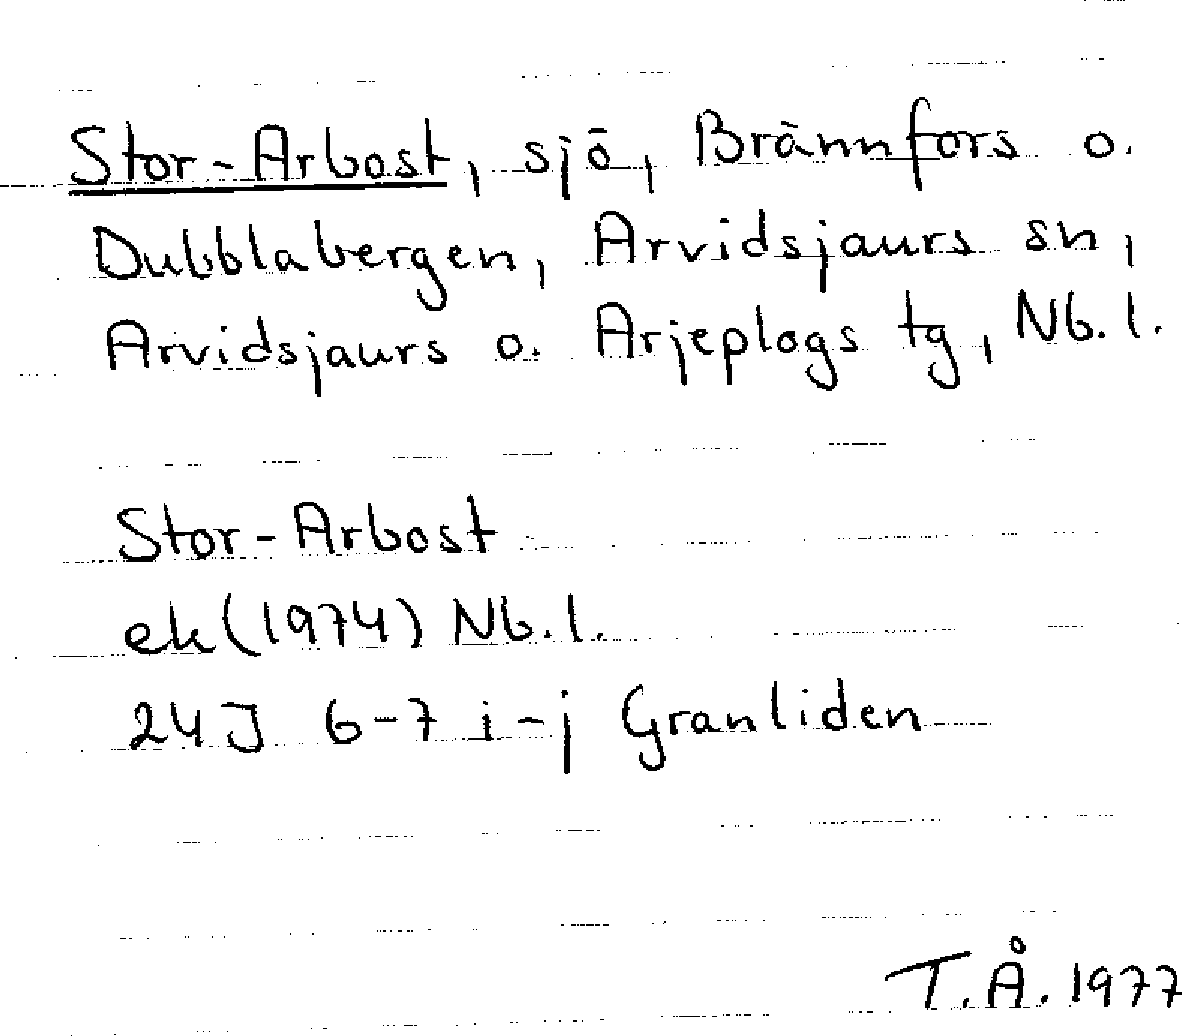 Stor-Arbost, sjö, Brännfors o.
Dubblabergen, Arvidsjaurs sn,
Arvidsjaurs o. Arjeplogs tg, Nb. l.
Stor-Arbost
ek (1974) Nb. l.
24J 6-7 i-j Granliden
T.Å. 1977